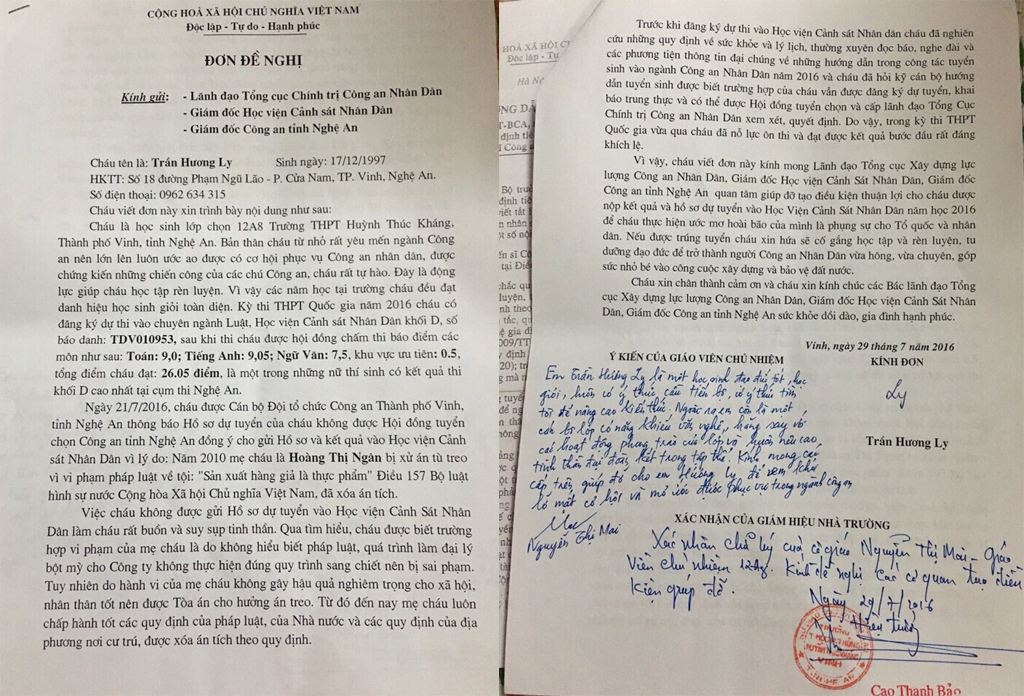 CỘNG HOÀ XÃ HỘI CHỦ NGHĨA VIỆT NAM
Độc lập - Tự do - Hạnh phúc
ĐƠN ĐỀ NGHỊ
Kính gửi: - Lãnh đạo Tổng cục Chính trị Công an Nhân Dân
- Giám đốc Học viện Cảnh sát Nhân Dân
- Giám đốc Công an tỉnh Nghệ An
Cháu tên là: Trần Hương Ly Sinh ngày: 17/12/1997
HKTT: Số 18 đường Phạm Ngũ Lão - P. Cửa Nam, TP. Vinh, Nghệ An.
Số điện thoại: 0962 634 315
Cháu viết đơn này xin trình bày nội dung như sau:
Cháu là học sinh lớp chọn 12A8 Trường THPT Huỳnh Thúc Kháng,
Thành phố Vinh, tỉnh Nghệ An. Bản thân cháu từ nhỏ rất yêu mến ngành Công
an nên lớn lên luôn ước ao được có cơ hội phục vụ Công an nhân dân, được
chứng kiến những chiến công của các chú Công an, cháu rất tự hào. Đây là động
lực giúp cháu học tập rèn luyện. Vì vậy các năm học tại trường cháu đều đạt
danh hiệu học sinh giỏi toàn diện. Kỳ thi THPT Quốc gia năm 2016 cháu có
đăng ký dự thi vào chuyên ngành Luật, Học viện Cảnh sát Nhân Dân khối D, số
báo danh: TDV010953, sau khi thi cháu được hội đồng chấm thi báo điểm các
môn như sau: Toán: 9,0; Tiếng Anh: 9,05; Ngữ Văn: 7,5, khu vực ưu tiên: 0.5,
tổng điểm cháu đạt: 26.05 điểm, là một trong những nữ thí sinh có kết quả thi
khối D cao nhất tại cụm thi Nghệ An.
Ngày 21/7/2016, cháu được Cán bộ Đội tổ chức Công an Thành phố Vinh,
tỉnh Nghệ An thông báo Hồ sơ dự tuyển của cháu không được Hội đồng tuyển
chọn Công an tỉnh Nghệ An đồng ý cho gửi Hồ sơ và kết quả vào Học viện Cảnh
sát Nhân Dân vì lý do: Năm 2010 mẹ cháu là Hoàng Thị Ngân bị xử án tù treo
vì vi phạm pháp luật về tội: "Sản xuất hàng giả là thực phẩm" Điều 157 Bộ luật
hình sự nước Cộng hòa Xã hội Chủ nghĩa Việt Nam, đã xóa án tích.
Việc cháu không được gửi Hồ sơ dự tuyển vào Học viện Cảnh Sát Nhân
Dân làm cháu rất buồn và suy sụp tinh thần. Qua tìm hiểu, cháu được biết trường
hợp vi phạm của mẹ cháu là do không hiểu biết pháp luật, quá trình làm đại lý
bột mỳ cho Công ty không thực hiện đúng quy trình sang chiết nên bị sai phạm.
Tuy nhiên do hành vi của mẹ cháu không gây hậu quả nghiêm trọng cho xã hội,
nhân thân tốt nên được Tòa án cho hưởng án treo. Từ đó đến nay mẹ cháu luôn
chấp hành tốt các quy định của pháp luật, của Nhà nước và các quy định của địa
phương nơi cư trú, được xóa án tích theo quy định.
Trước khi đăng ký dự thi vào Học viện Cảnh sát Nhân dân cháu đã nghiên
cứu những quy định về sức khỏe và lý lịch, thường xuyên đọc báo, nghe đài và
các phương tiện thông tin đại chúng về những hướng dẫn trong công tác tuyển
sinh vào ngành Công an Nhân Dân năm 2016 và cháu đã hỏi kỹ cán bộ hướng
dẫn tuyển sinh được biết trường hợp của cháu vẫn được đăng ký dự tuyển, khai
báo trung thực và có thể được Hội đồng tuyển chọn và cấp lãnh đạo Tổng Cục
Chính trị Công an Nhân Dân xem xét, quyết định. Do vậy, trong kỳ thi THPT
Quốc gia vừa qua cháu đã nỗ lực ôn thi và đạt được kết quả bước đầu rất đáng
khích lệ.
Vì vậy, cháu viết đơn này kính mong Lãnh đạo Tổng cục Xây dựng lực
lượng Công an Nhân Dân, Giám đốc Học viện Cảnh Sát Nhân Dân, Giám đốc
Công an tỉnh Nghệ An quan tâm giúp đỡ tạo điều kiện thuận lợi cho cháu được
nộp kết quả và hồ sơ dự tuyển vào Học viện Cảnh Sát Nhân Dân năm học 2016
để cháu thực hiện ước mơ hoài bão của mình là phụng sự cho Tổ quốc và nhân
dân. Nếu được trúng tuyển cháu xin hứa sẽ cố gắng học tập và rèn luyện, tu
dưỡng đạo đức để trở thành người Công an Nhân Dân vừa hồng, vừa chuyên, góp
sức nhỏ bé vào công cuộc xây dựng và bảo vệ đất nước.
Cháu xin chân thành cảm ơn và cháu xin kính chúc các Bác lãnh đạo Tổng
cục Xây dựng lực lượng Công an Nhân Dân, Giám đốc Học viện Cảnh Sát Nhân
Dân, Giám đốc Công an tỉnh Nghệ An sức khỏe dồi dào, gia đình hạnh phúc.
Vinh, ngày 29 tháng 7 năm 2016
Ý KIẾN CỦA GIÁO VIÊN CHỦ NHIỆM KÍNH ĐƠN
Em Trần Hương Ly là một học sinh đạo đức tốt, học
giỏi, luôn có ý thức cầu tiến bộ, có ý thức tìm
tòi để nâng cao kiến thức. Ngoài ra em còn là một
cán bộ lớp có năng khiếu văn nghệ, hăng say với
các hoạt động phong trào của lớp và luôn nêu cao
tinh thần đại đoàn kết trong tập thể. Kính mong các
cấp trên giúp đỡ cho em Hương Ly để em
có một cơ hội và mơ ước được phục vụ trong ngành công an
Ly
Trần Hương Ly
Mai
Nguyễn Thị Mai
XÁC NHẬN CỦA GIÁM HIỆU NHÀ TRƯỜNG
Xác nhận chữ ký của cô giáo Nguyễn Thị Mai - Giáo
Viên chủ nhiệm 12A8. Kính đề nghị các cơ quan tạo điều
kiện giúp đỡ.
Ngày 29/7/2016
Hiệu trưởng
Cao Thanh Bảo